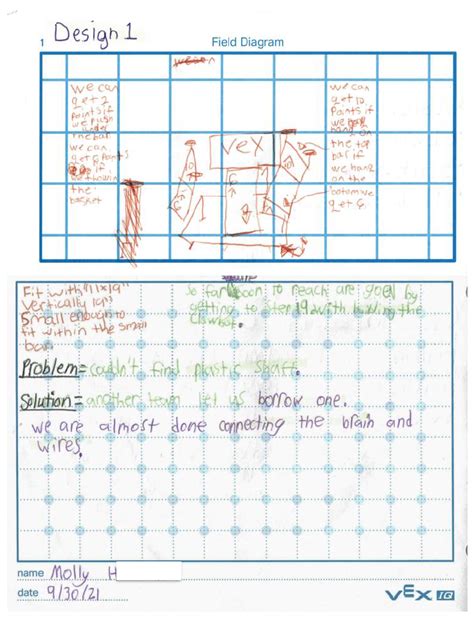 Design 1
1 Field Diagram
we can
get 2
points if
we push
under
the ball
we can
get 6 points
if
we throw in
the
basket
we can
get 10
points if
we
hang on
the top
bar if
we hang
on the
bottom we
get 6
VEX
Fit with "11x19"
vertically
Small enough to
fit within the small
bar.
so far soon to reach are goal by
getting to step 19 with the
Clawbot.
Problem= couldn't find plastic shaft.
Solution= another team let us borrow one.
we are almost done connecting the brain and
wires.
name Molly H
date 9/30/21
VEX IQ